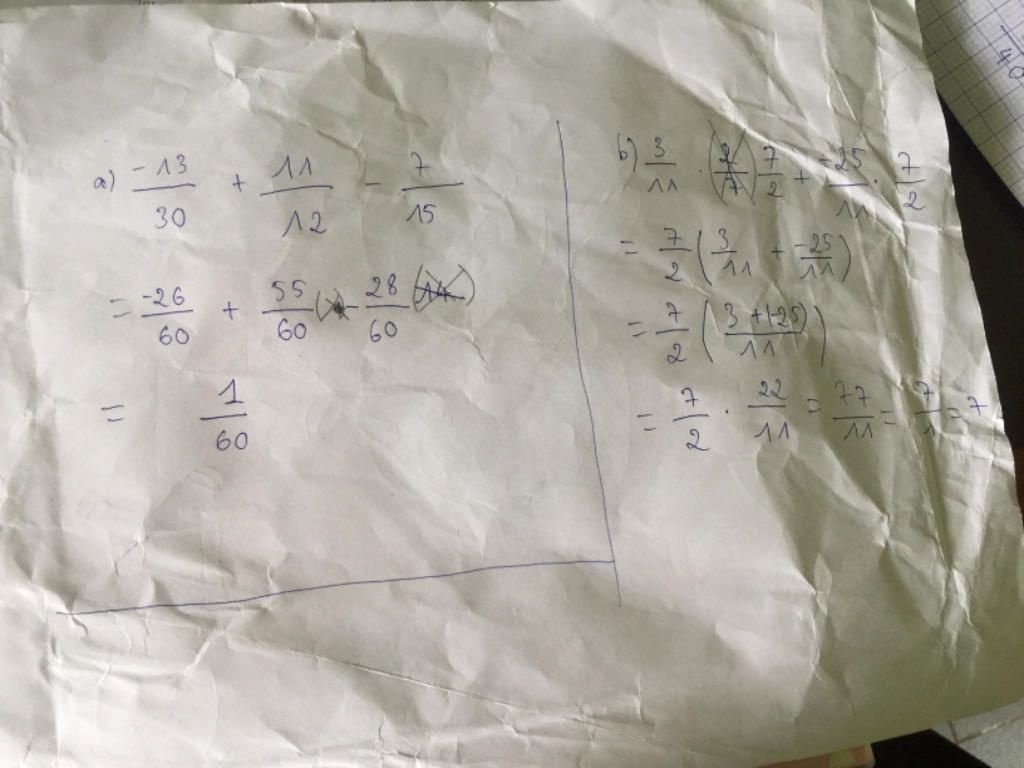 a) -13/30 + 11/12 - 7/15
= -26/60 + 55/60 - 28/60
= 1/60
b) 3/11 · 7/2 + -25/11 · 7/2
= 7/2 (3/11 + -25/11)
= 7/2 (3+(-25)/11)
= 7/2 · 22/11 = 77/11 = 7/1 = 7